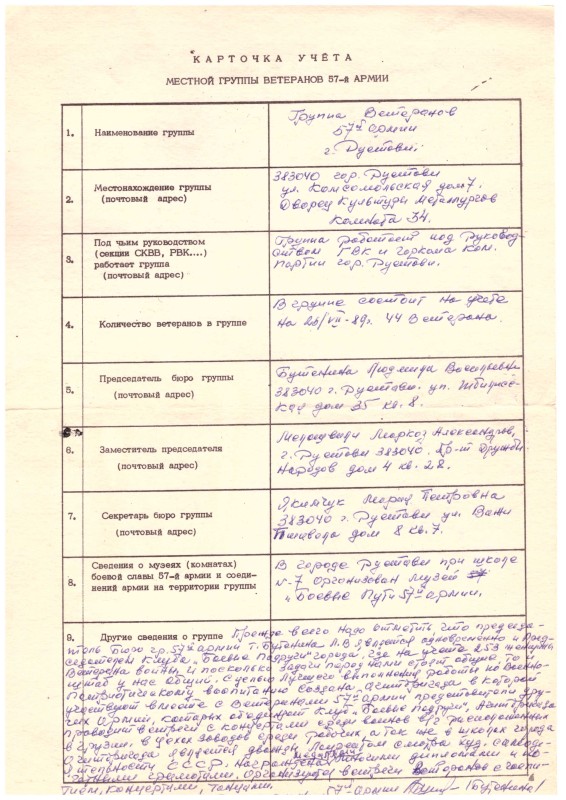 КАРТОЧКА УЧЁТА
МЕСТНОЙ ГРУППЫ ВЕТЕРАНОВ 57-й АРМИИ
1. Наименование группы
Группа Ветеранов
57й армии
г. Рустави.
2. Местонахождение группы
(почтовый адрес)
383040 гор. Рустави
ул. Комсомольская дом 7.
Дворец Культуры Металлургов
Комната 34.
3. Под чьим руководством
(секции СКВВ, РВК....)
работает группа
(почтовый адрес)
Группа работает под Руковод-
ством ГВК и горкома Ком.
партии гор. Рустави.
4. Количество ветеранов в группе
В группе состоит на учете
44 Ветерана.
5. Председатель бюро группы
(почтовый адрес)
Бутенина Людмила Васильевна
383040 г. Рустави. ул.
дом 35 кв. 8.
6. Заместитель председателя
(почтовый адрес)
г. Рустави 383040. Пр-т Дружбы
Народов дом 4 кв. 28.
7. Секретарь бюро группы
(почтовый адрес)
Якимчук Мария Петровна
383040 г. Рустави ул. Важи
Пшавела дом 8 кв. 7.
8. Сведения о музеях (комнатах)
боевой славы 57-й армии и соеди-
нений армии на территории группы
В городе Рустави при школе
N-7 Организован музей
„Боевые Пути 57й армии.
9. Другие сведения о группе Прежде всего надо отметить что председа-
тель Бюро гр. 57й армии т. Бутенина Л.В является одновременно и Пред-
седателем Клуба „Боевые подруги" города, где на учете 253 женщины
Ветерана войны и поскольку задачи перед нами стоят общие, то и
штаб у нас общий. С целью лучшего выполнения работы по Военно-
Патриотическому воспитанию создана Агитбригада в которой
участвуют вместе с Ветеранами 57й армии представители дру-
гих армий, которых объединяет Клуб „Боевые подруги". Агитбригада
проводит встречи с концертами среди воинов в/ч расположенных
в Грузии. в Цехах заводов среди рабочих, а так же в школах города
Агитбригада является дважды Лауреатом смотра худ. самоде-
ятельности СССР. Награждена многими дипломами и по-
четными грамотами. Организует встречи Ветеранов с
концертами, танцами.
57й армии /Бутенина/